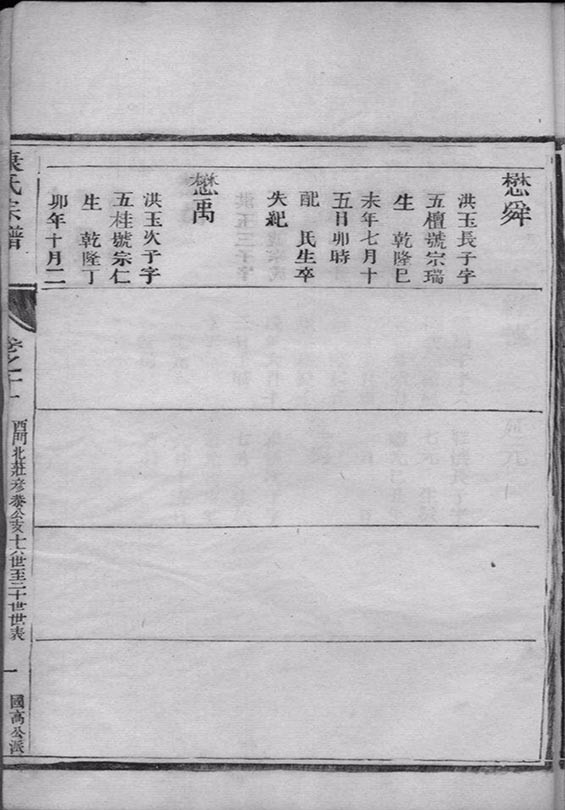 懋舜
洪玉長子字
五檀號宗瑞
生 乾隆巳
未年七月十
五日卯時
配 氏生卒
失紀
懋禹
洪玉次子字
五桂號宗仁
生 乾隆丁
卯年十月二
氏宗譜
卷之十一
西門北莊
公亥十六世至二十世世表
一
國高公派